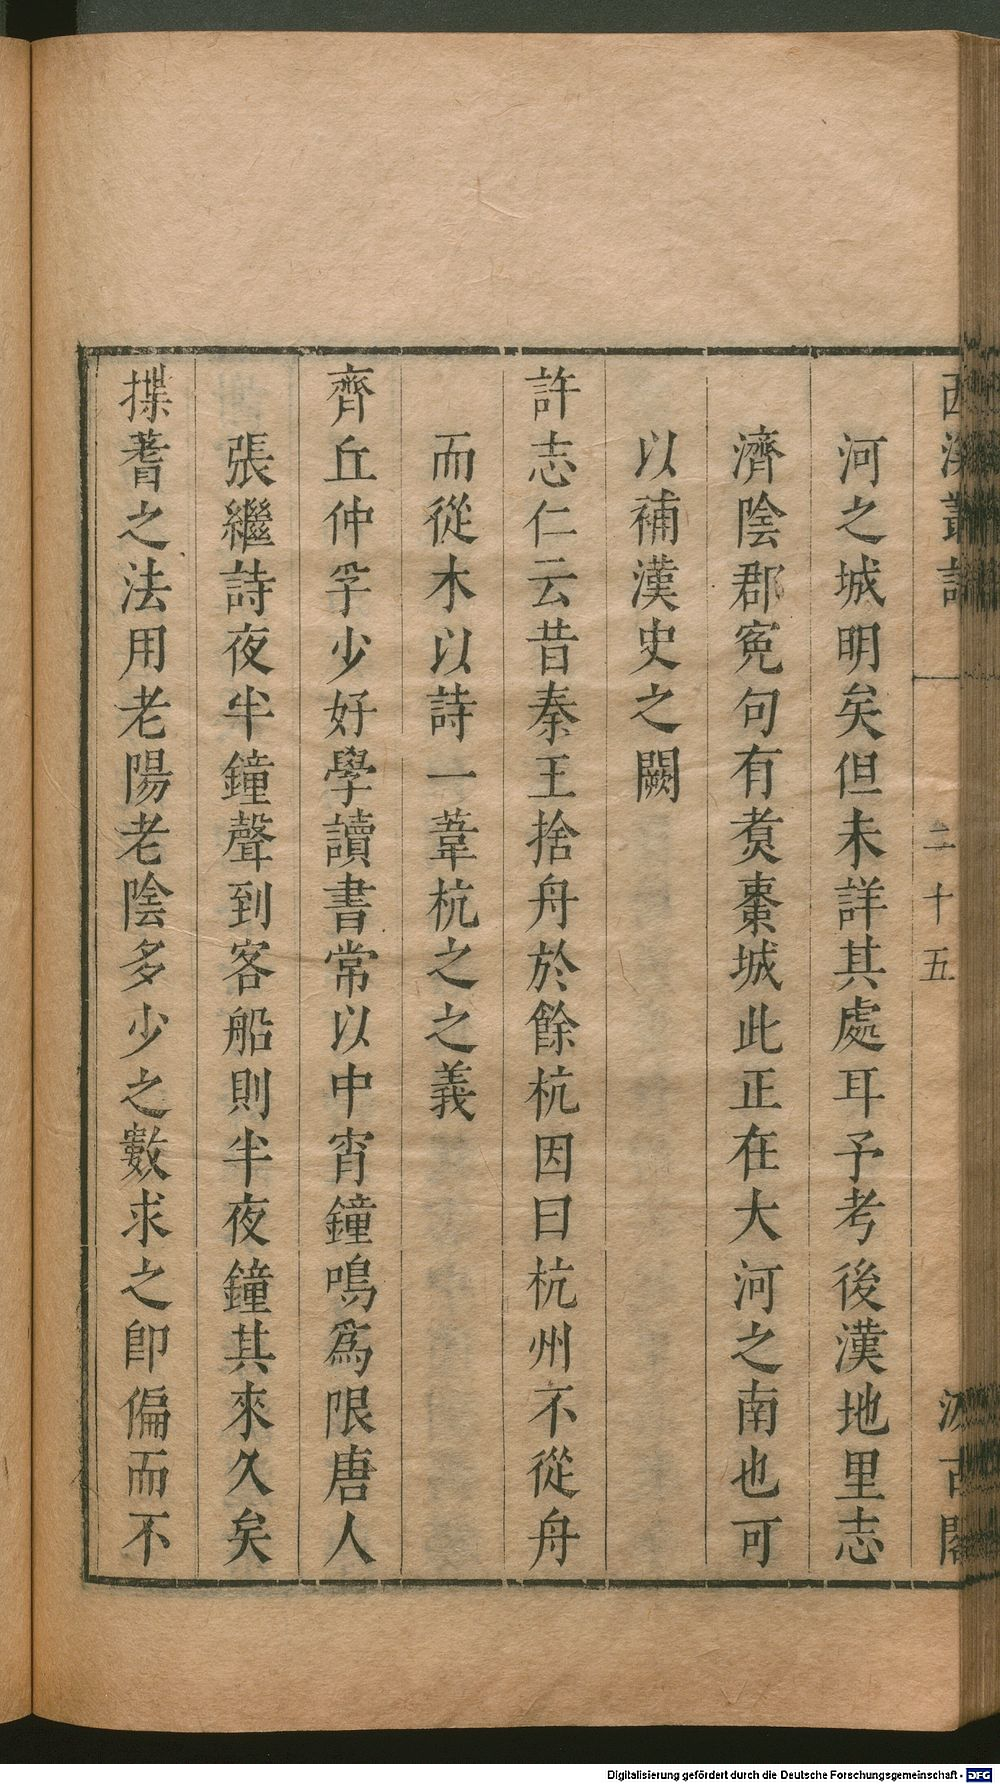 西溪叢語
二十五
汲古閣
河之城明矣但未詳其處耳予考後漢地里志
濟陰郡寃句有煑棗城此正在大河之南也可
以補漢史之闕
許志仁云昔秦王捨舟於餘杭因曰杭州不從舟
而從木以詩一葦杭之之義
齊丘仲孚少好學讀書常以中宵鐘鳴爲限唐人
張繼詩夜半鐘聲到客船則半夜鐘其來久矣
揲蓍之法用老陽老陰多少之數求之卽偏而不
Digitalisierung gefördert durch die Deutsche Forschungsgemeinschaft - DFG